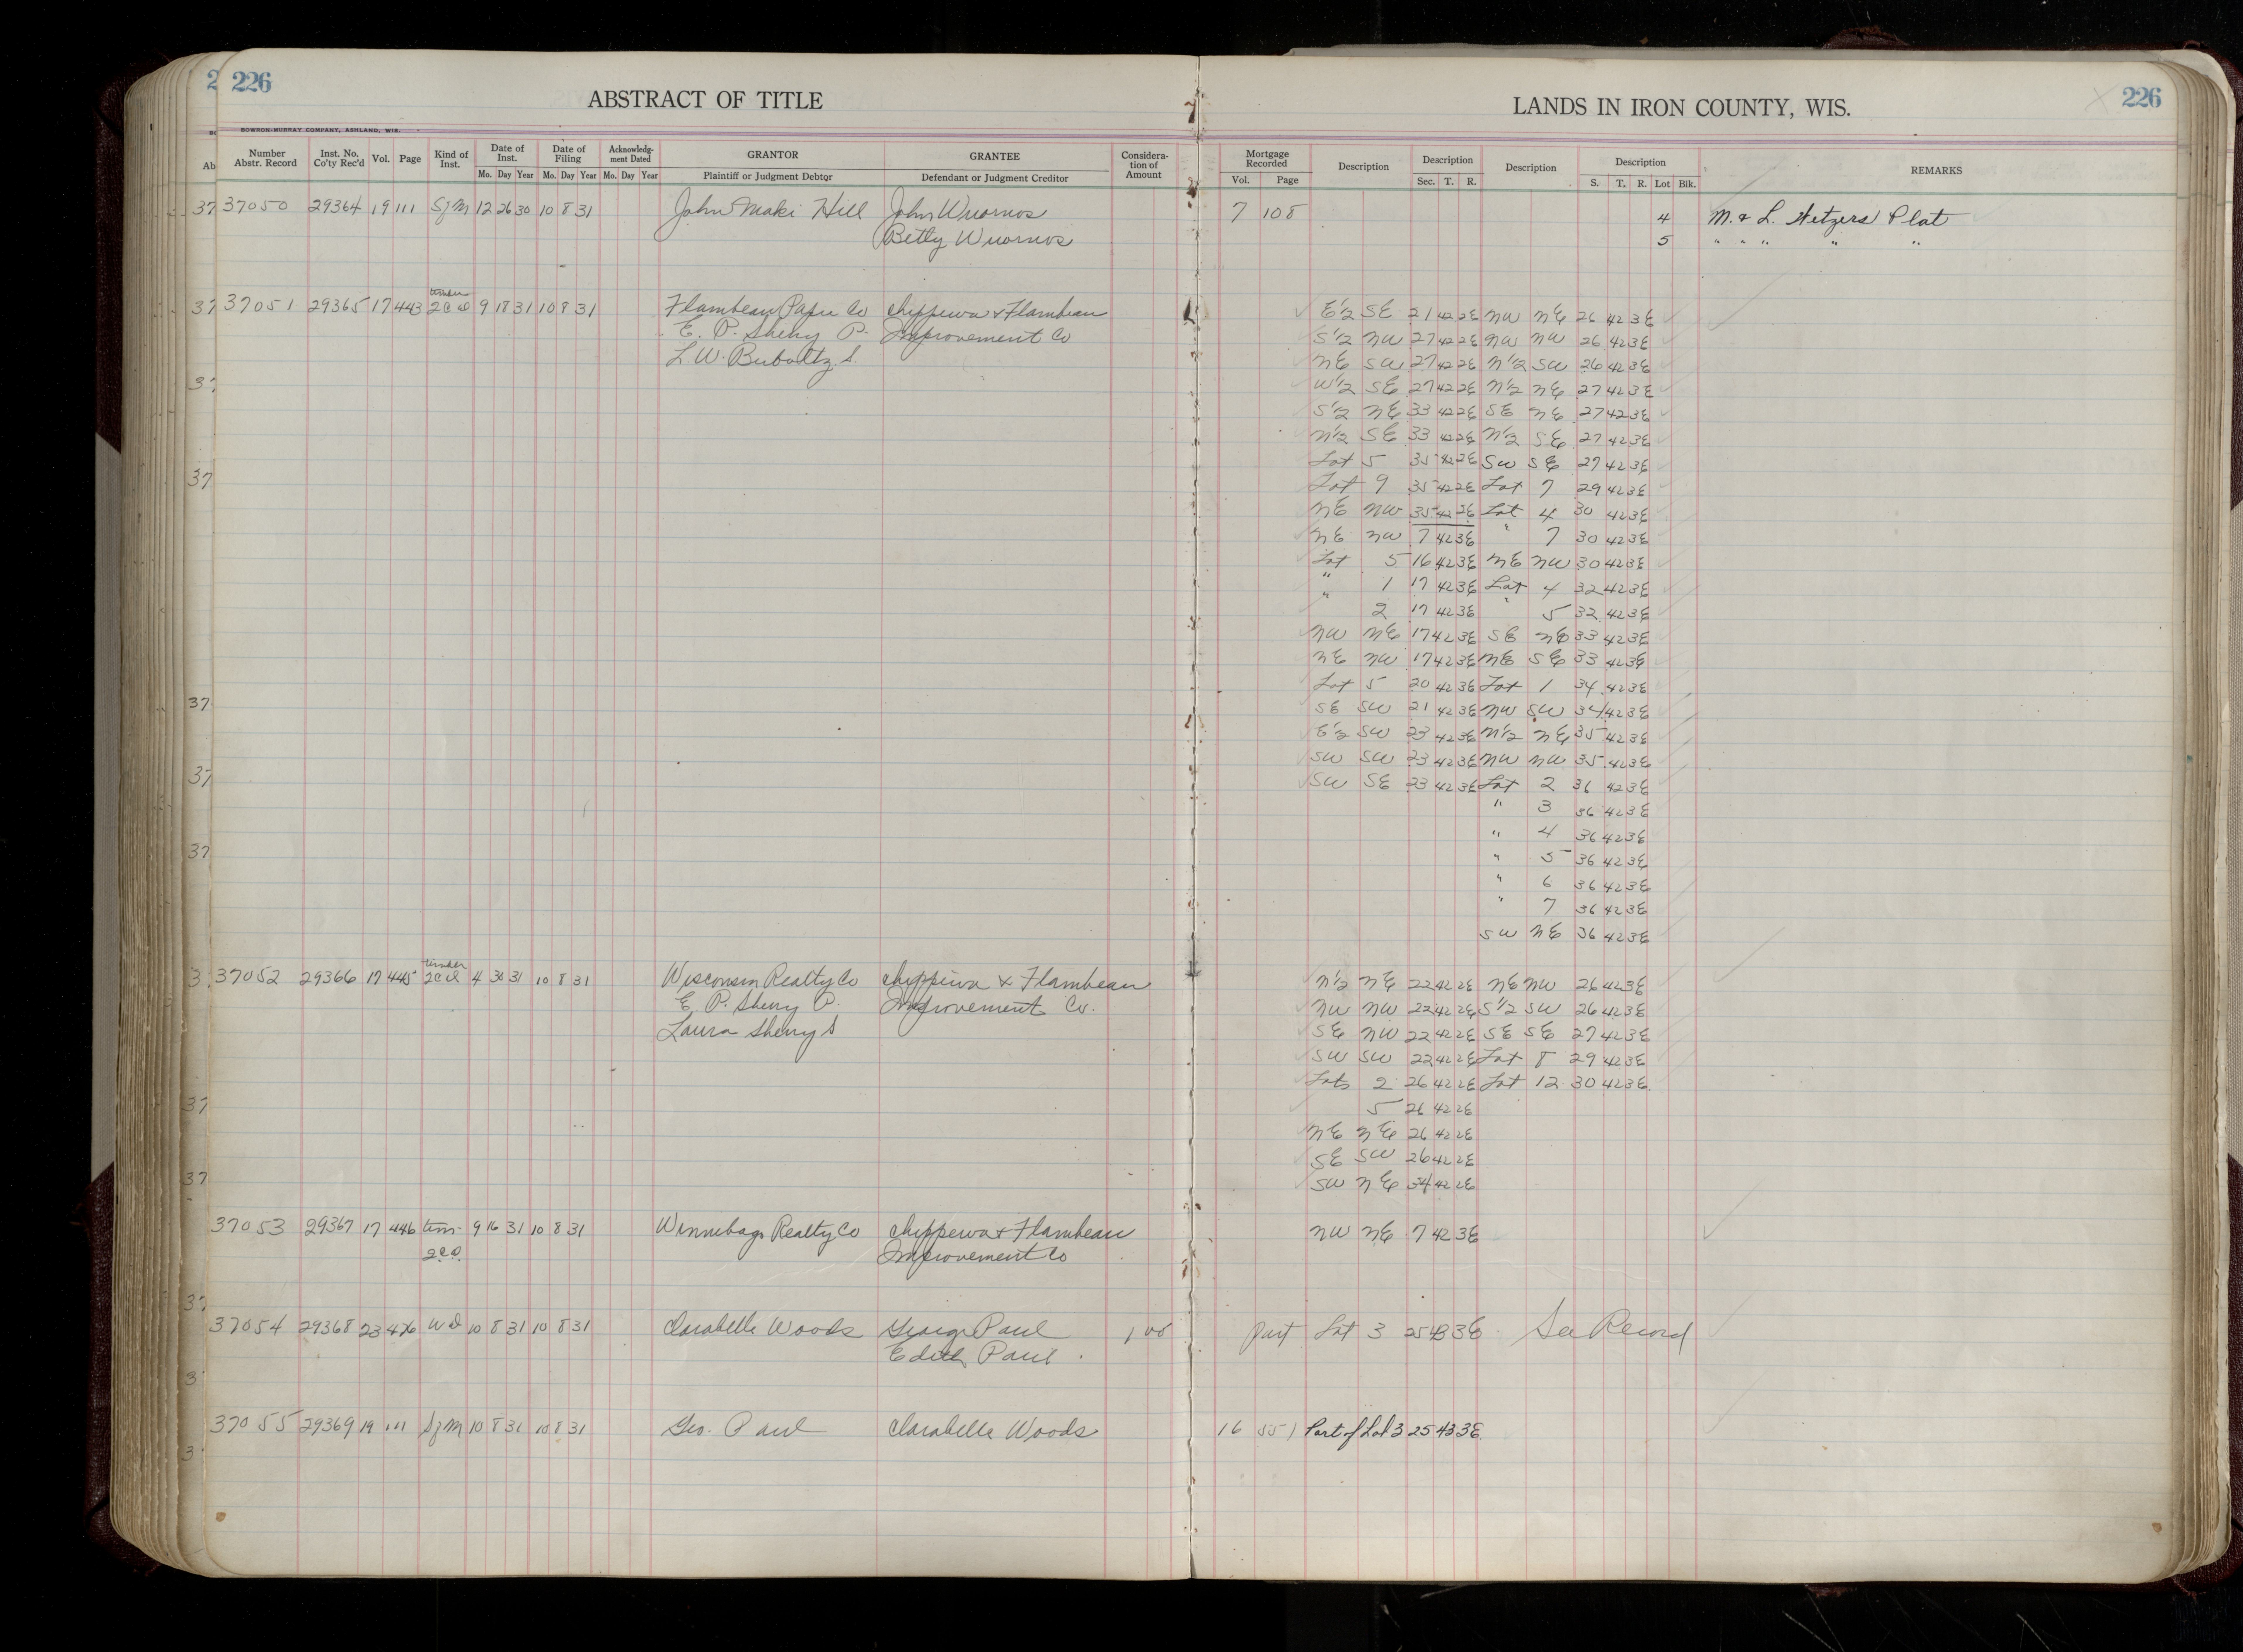 2 226
ABSTRACT OF TITLE
LANDS IN IRON COUNTY, WIS.
226
BOWRON-MURRAY COMPANY, ASHLAND, WIS.
Ab Number Abstr. Record Inst. No. Co'ty Rec'd Vol. Page Kind of Inst. Date of Inst. Date of Filing Acknowledg-ment Dated GRANTOR GRANTEE Considera-tion of Amount Mortgage Recorded Description Description Description Description REMARKS
Mo. Day Year Mo. Day Year Mo. Day Year Plaintiff or Judgment Debtor Defendant or Judgment Creditor Vol. Page Sec. T. R. S. T. R. Lot Blk.
37050 29364 19 111 Sf M 12 26 30 10 8 31 John Maki Hill John Wuornos 7 108 4 M. & L. Plat
Betty Wuornos 5 " " " " "
timber
37051 29365 17 443 2 C D 9 18 31 10 8 31 Flambeau Paper Co Chippewa & Flambeau E 1/2 SE 21 42 2E NW NE 26 42 3E
E. P. Sherry P. Improvement Co S 1/2 NW 27 42 2E NW NW 26 42 3E
L. W. Buboltz S. NE SW 27 42 2E N 1/2 SW 26 42 3E
W 1/2 SE 27 42 2E N 1/2 NE 27 42 3E
S 1/2 NE 33 42 2E SE NE 27 42 3E
N 1/2 SE 33 42 2E N 1/2 SE 27 42 3E
Lot 5 35 42 2E SW SE 27 42 3E
Lot 9 35 42 2E Lot 7 29 42 3E
NE NW 35 42 2E Lot 4 30 42 3E
NE NW 7 42 3E " 7 30 42 3E
Lot 5 16 42 3E NE NW 30 42 3E
" 1 17 42 3E Lot 4 32 42 3E
" 2 17 42 3E " 5 32 42 3E
NW NE 17 42 3E SE NE 33 42 3E
NE NW 17 42 3E NE SE 33 42 3E
Lot 5 20 42 3E Lot 1 34 42 3E
SE SW 21 42 3E NW SW 34 42 3E
E 1/2 SW 23 42 3E N 1/2 NE 35 42 3E
SW SW 23 42 3E NW NW 35 42 3E
SW SE 23 42 3E Lot 2 36 42 3E
" 3 36 42 3E
" 4 36 42 3E
" 5 36 42 3E
" 6 36 42 3E
" 7 36 42 3E
SW NE 36 42 3E
timber
37052 29366 17 445 2 C D 4 30 31 10 8 31 Wisconsin Realty Co Chippewa & Flambeau N 1/2 NE 22 42 2E NE NW 26 42 3E
E. P. Sherry P. Improvement Co. NW NW 22 42 2E S 1/2 SW 26 42 3E
Laura Sherry S SE NW 22 42 2E SE SE 27 42 3E
SW SW 22 42 2E Lot 8 29 42 3E
Lots 2 26 42 2E Lot 12 30 42 3E
5 26 42 2E
NE NE 26 42 2E
SE SW 26 42 2E
SW NE 34 42 2E
37053 29367 17 446 tim- 9 16 31 10 8 31 Winnebago Realty Co Chippewa & Flambeau NW NE 7 42 3E
2 C D. Improvement Co
37054 29368 23 476 W D 10 8 31 10 8 31 Clarabelle Woods George Paul 1 00 Part Lot 3 25 43 3E. See Record
Edith Paul
37055 29369 19 111 Sf M 10 8 31 10 8 31 Geo. Paul Clarabelle Woods 16 551 Part of Lot 3 25 43 3E.